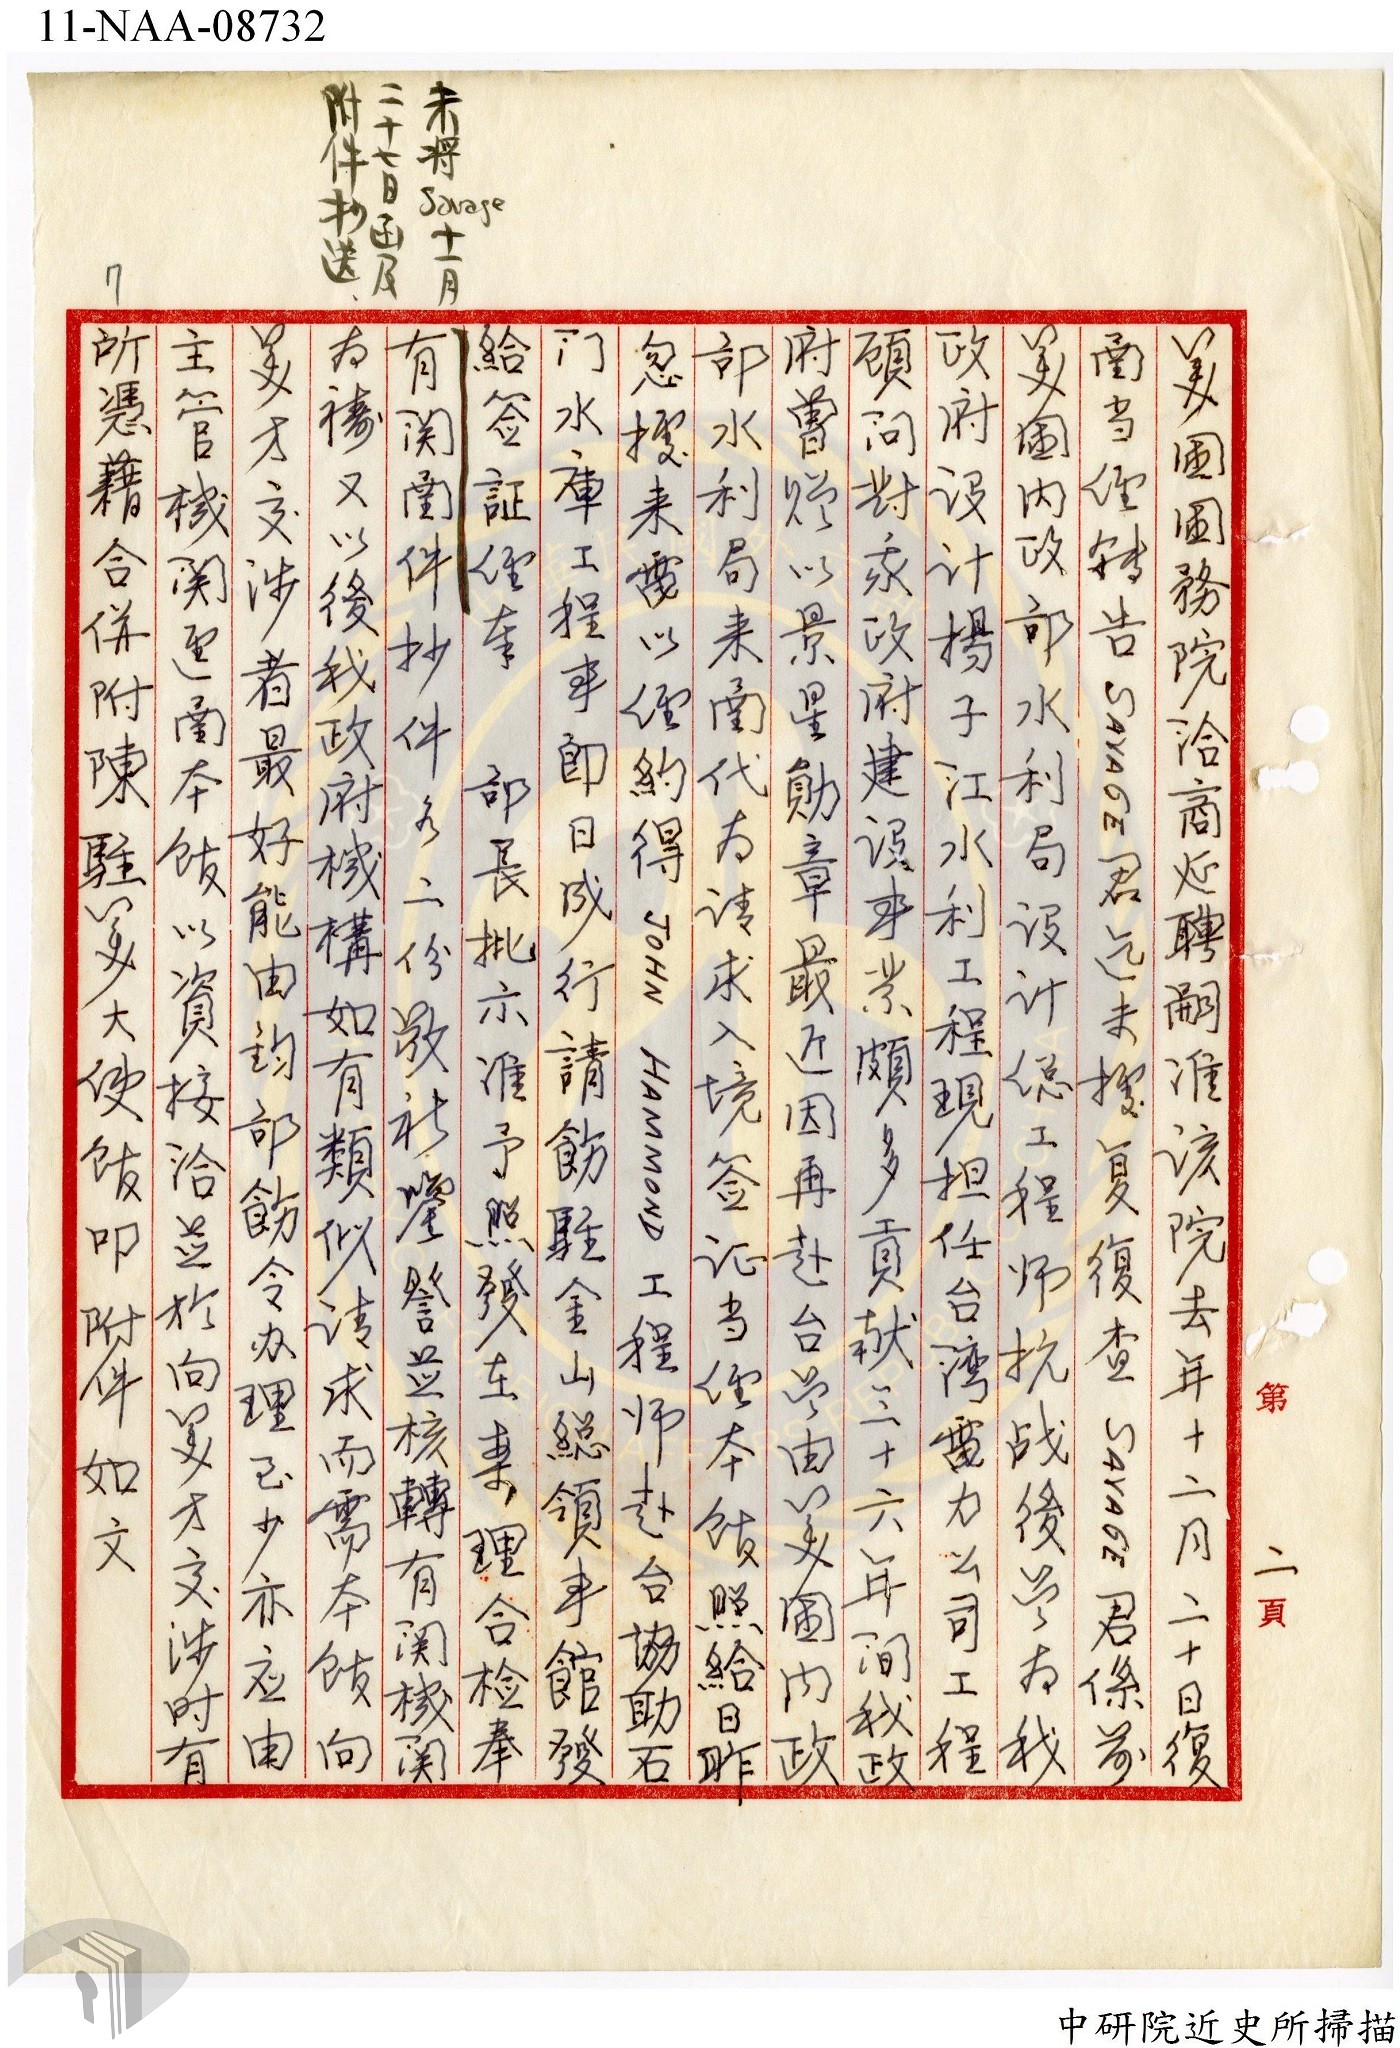 11-NAA-08732
未將Savage十一月
二十七日函及
附件抄送、
第二頁
美国国務院洽商延聘嗣准该院去年十二月二十日復
函当经转告SAVAGE君迄未據复復查SAVAGE君係前
美国内政部水利局设计总工程师抗战後曾为我
政府设计揚子江水利工程現担任台湾電力公司工程
顾问對我政府建設事業頗多貢献三十六年间我政
府曾赠以景星勛章最近因再赴台曾由美国内政
部水利局来函代为请求入境签证当经本館照給日昨
忽據来電以经約得JOHN HAMMOND工程师赴台協助石
门水庫工程事即日成行請飭駐金山總領事館發
給签証经奉 部長批示准予照發在案理合检奉
有関函件抄件各二份敬祈鑒詧並核轉有関機関
为禱又以後我政府機構如有類似请求而需本館向
美方交涉者最好能由鈞部飭令办理至少亦应由
主管機関逕函本館以資接洽並於向美方交涉时有
所憑藉合併附陳駐美大使館叩附件如文
7
中研院近史所掃描